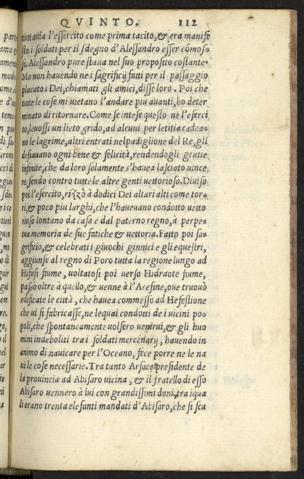 QVINTO. 112
tuttavia l'essercito come prima tacito, & era manife
sto i soldati per il sdegno d'Alessandro esser cōmos-
si. Alessandro pure staua nel suo proposito costante.
Ma non hauendo ne i sagrificij fatti per il passaggio
placato i Dei, chiamati gli amici, disse loro. Poi che
tutte le cose mi uietano l'andare piu auanti, ho deter
minato di ritornare. Come se intese questo ne l'eserci
to, leuossi un lieto grido, ad alcuni per letitia cadea-
no le lagrime, altri entrati nel padiglione del Re, gli
desiauano ogni bene & felicità, rendendogli gratie
infinite, che da loro solamente s'hauea lasciato uince
re, sendo contro tutte le altre genti uettorioso. Diuiso
poi l'esercito, rizzò à dodici Dei altari alti come tor=
ri, & poco piu larghi, che l'haueuano condotto uetto
rioso lontano da casa e dal paterno regno, à perpe=
tua memoria de sue fatiche & uettoria. Fatto poi sa=
grificio, & celebrati giuochi ginnici e gli equestri,
aggiunse al regno di Poro tutta la regione lungo ad
Hifasi fiume, uoltatosi poi uerso Hidraote fiume,
passò oltre à quello, & uenne à l'Acesine, oue truouò
edificate le città, che hauea commesso ad Hefestione
che ui si fabricasse, ne lequai condotti de i uicini po=
poli, che spontaneamente uolsero uenirui, & gli huo
mini indeboliti tra i soldati mercenarij, hauendo in
animo di nauicare per l'Oceano, fece porre ne le na
ui le cose necessarie. Tra tanto Arsace presidente de
la prouincia ad Abisaro uicina, & il fratello di esso
Abisaro uennero à lui con grandissimi doni, tra iqua
li erano trenta elefanti mandati d'Abisaro, che si scu